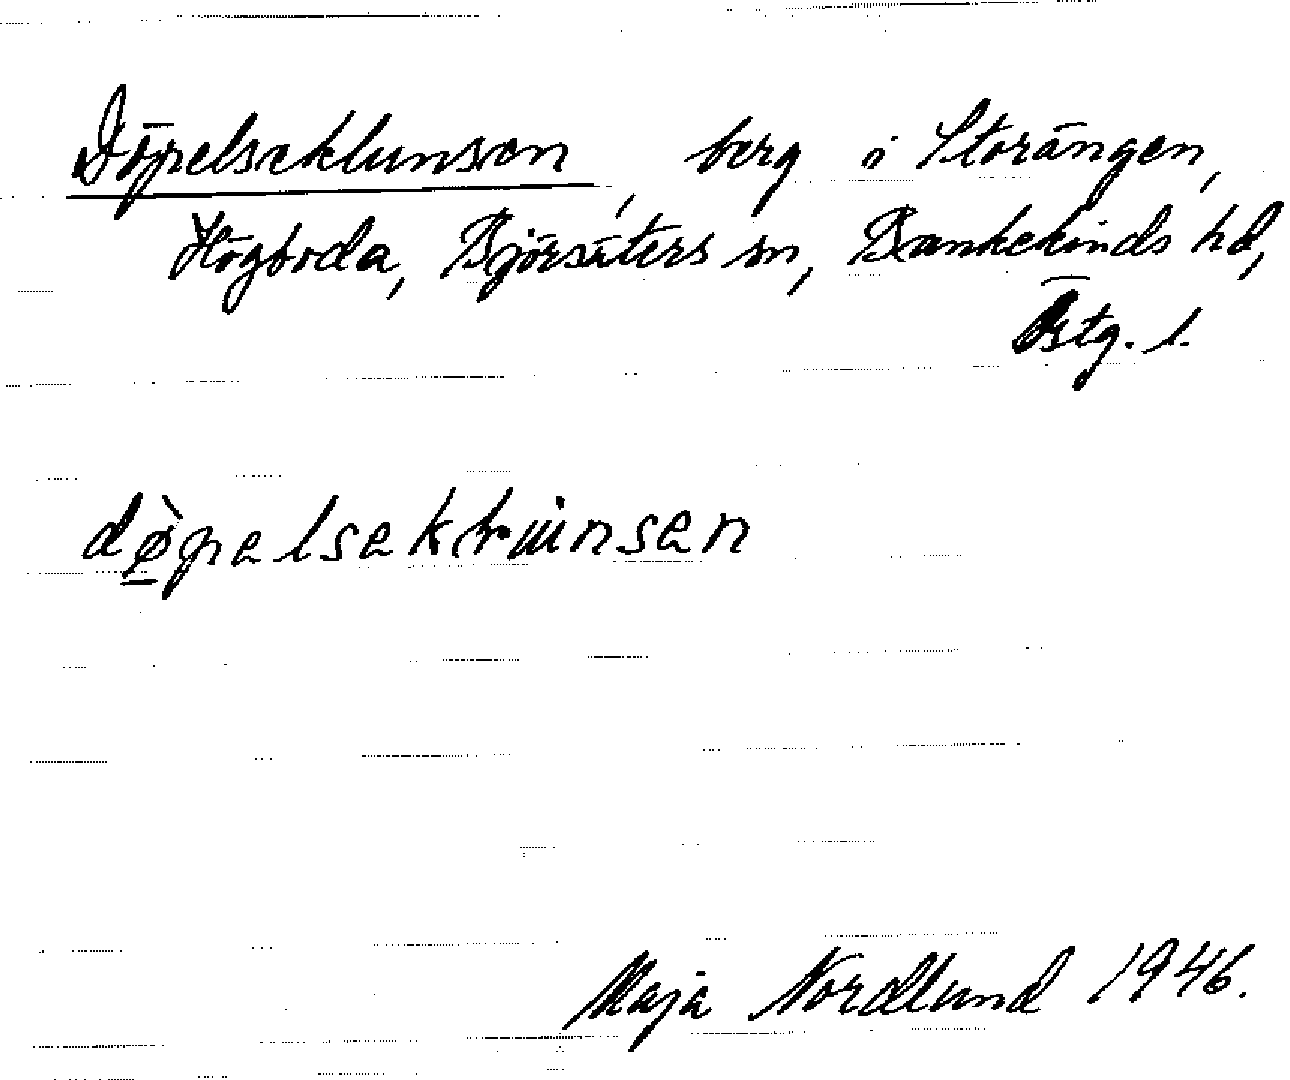 Döpelseklunsen, berg i Storängen,
Högboda, Björsäters sn, Bankekinds hd,
Östg. l.
dø̀pelseklunsen
Maja Nordlund 1946.